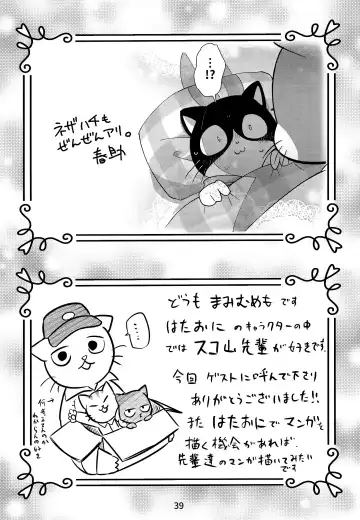 …!?
ネザハチも
ぜんぜんアリ。
春助
どうも まみむめも です
はたおに のキャラクターの中
では スコ山先輩 が好きです。
今回 ゲストに呼んで下さり
ありがとうございました!!
また はたおにでマンガを
描く機会があれば、
先輩達のマンガ描いてみたい
です
……
39